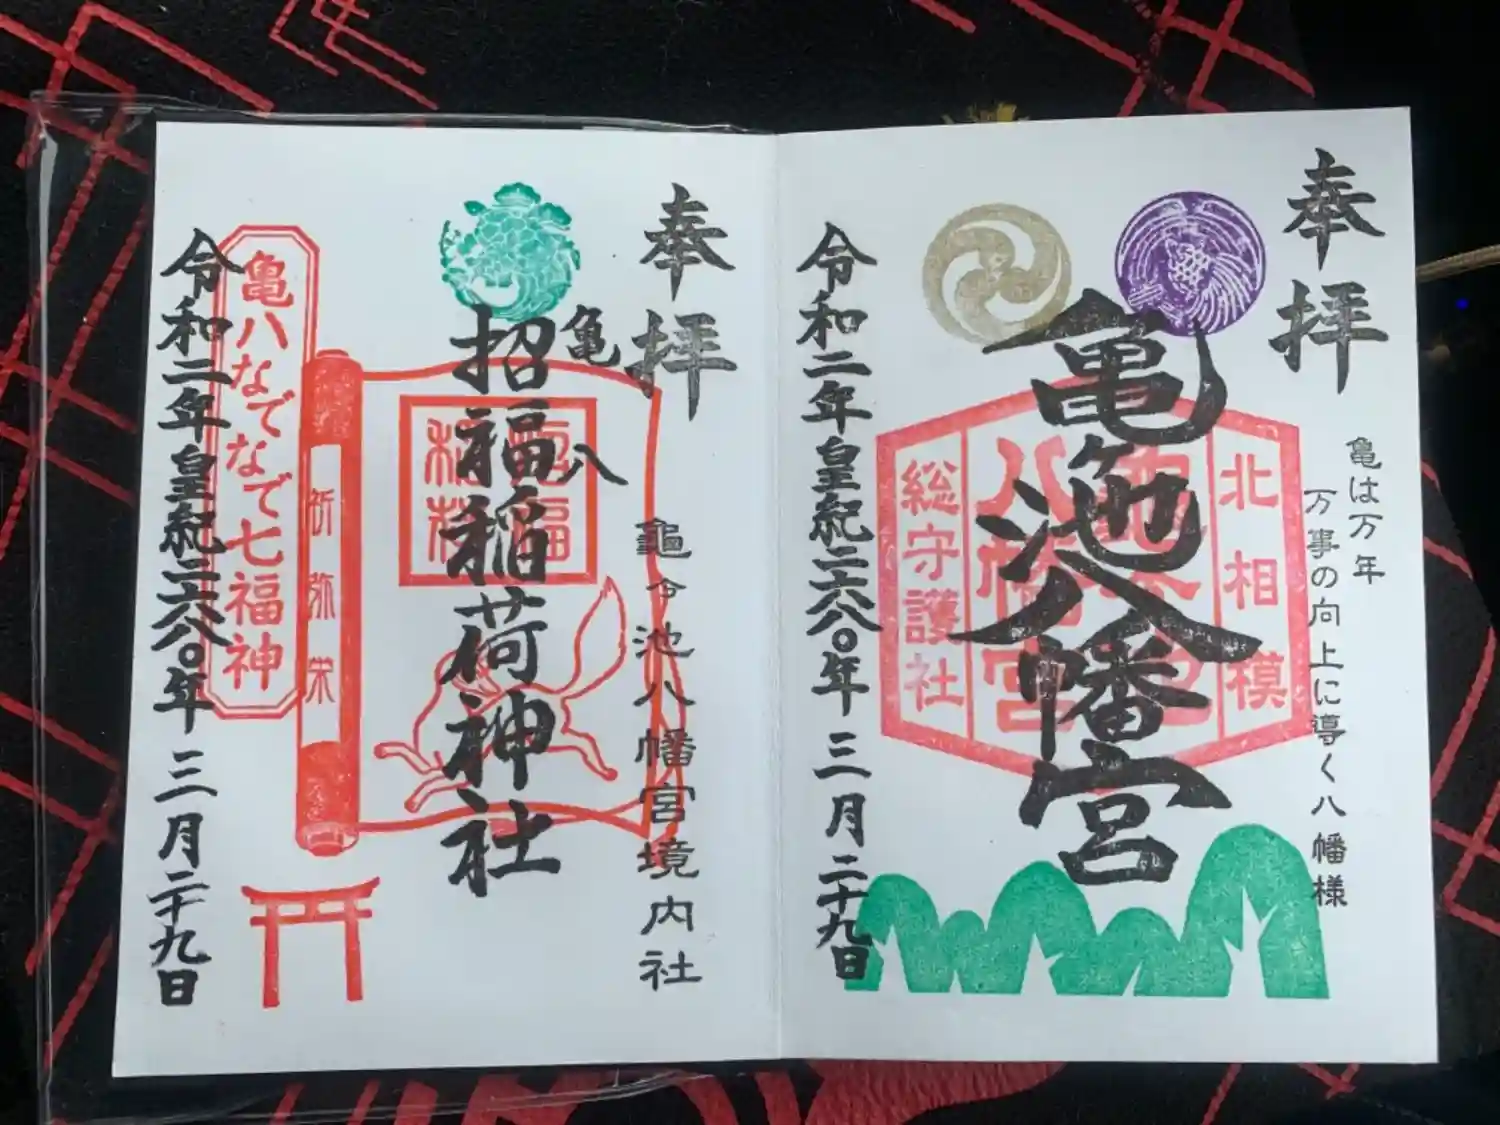 奉拝
亀は万年
万事の向上に導く八幡様
北相模
亀ヶ池八幡宮
総守護社
令和二年皇紀二六八〇年三月二十九日
奉拝
龜ヶ池八幡宮境内社
亀八
招福稲荷神社
亀八なでなで七福神
令和二年皇紀二六八〇年三月二十九日